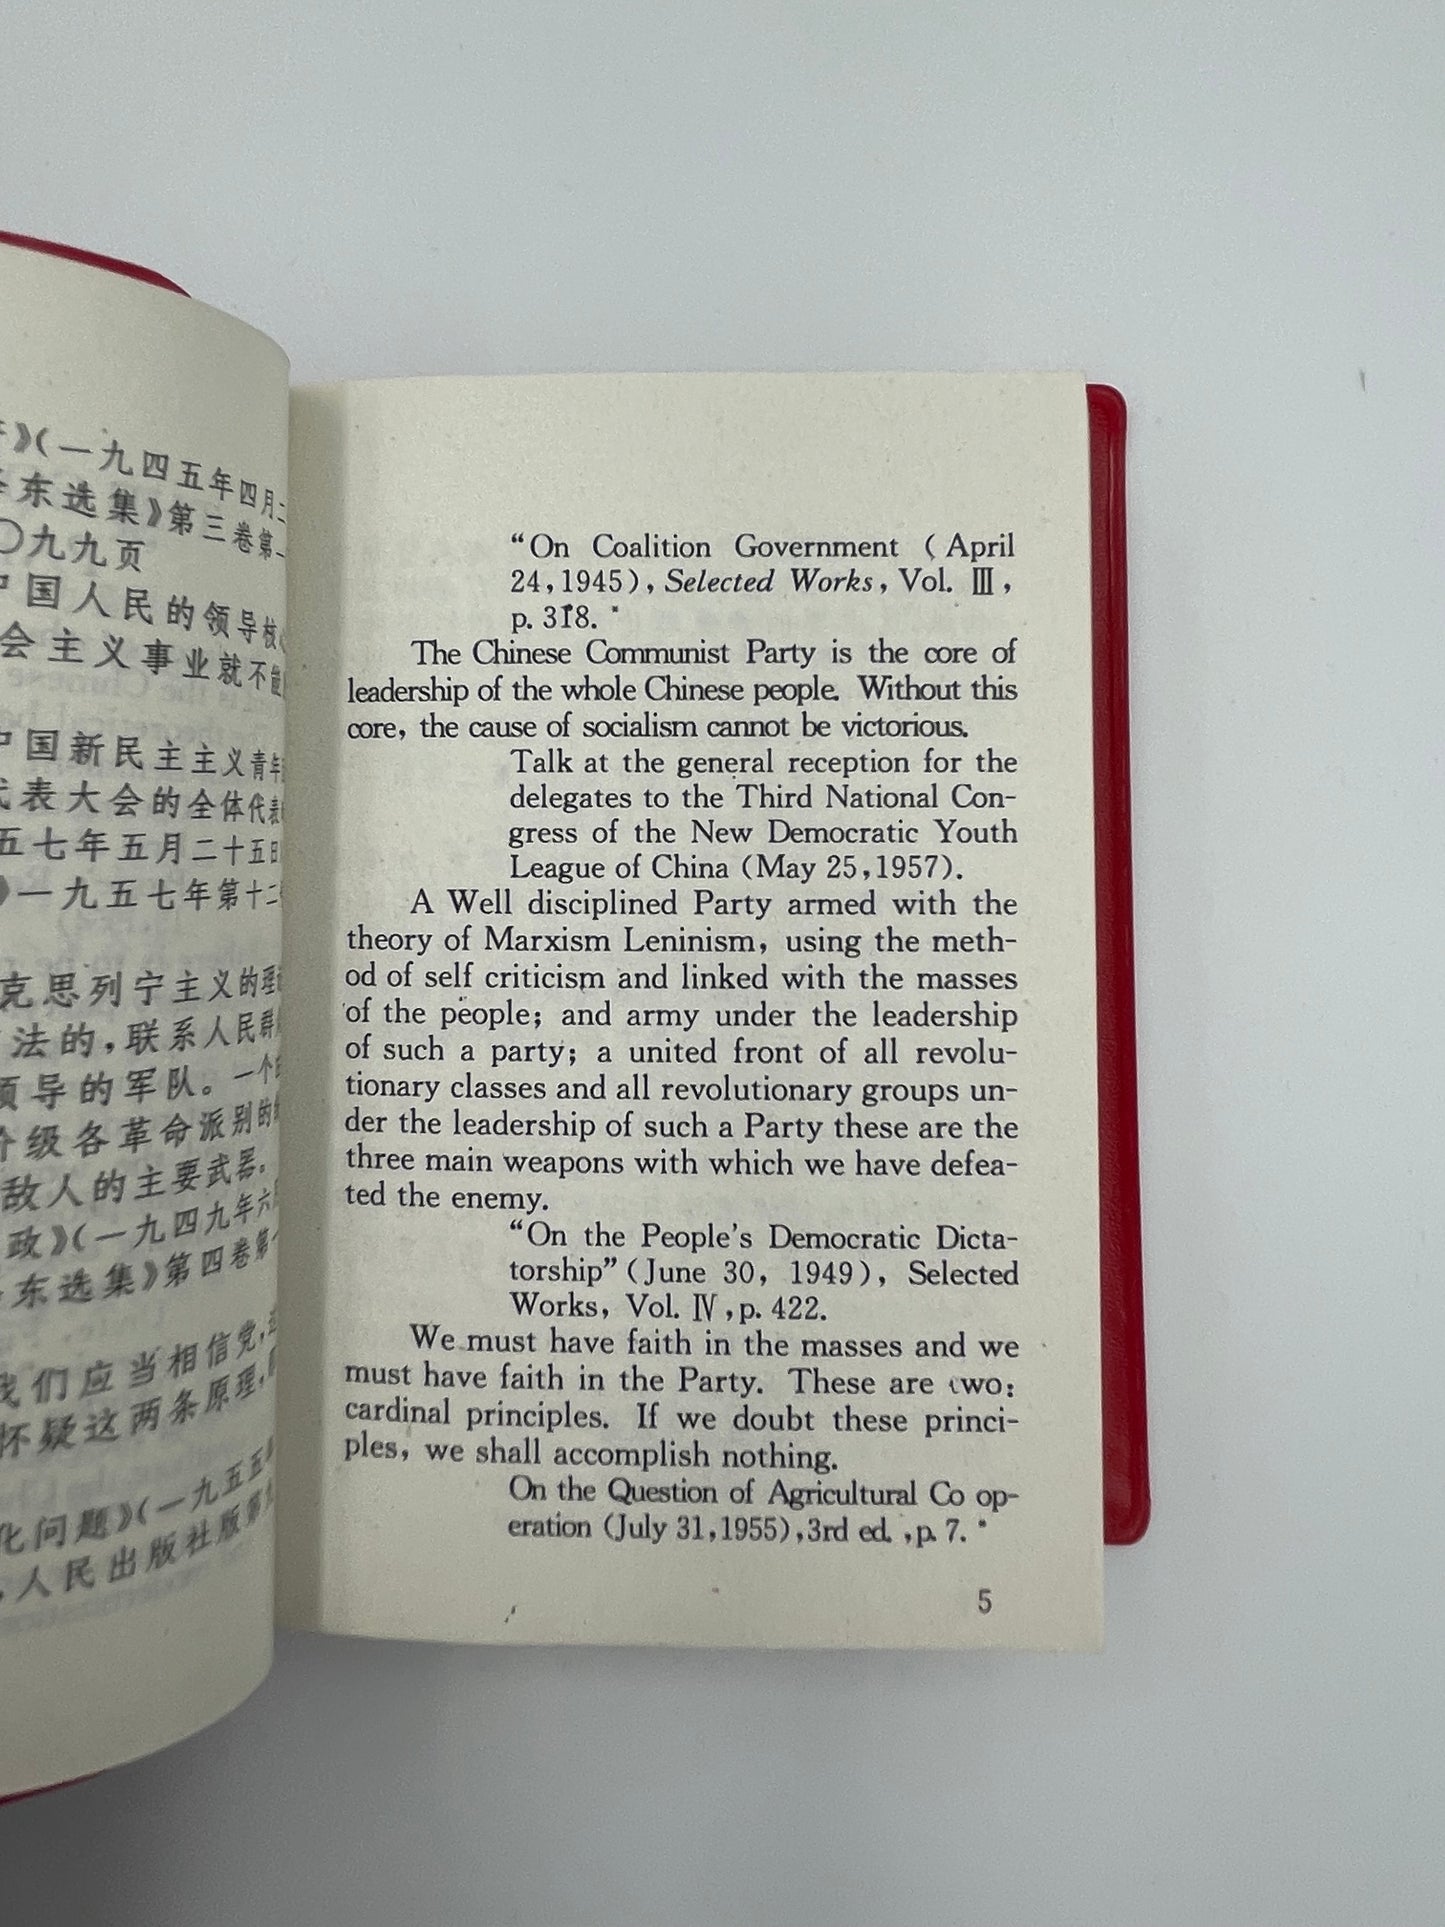 》(一九四五年四月二
东选集》第三卷第一
〇九九页
中国人民的领导核心
会主义事业就不能
中国新民主主义青年
代表大会的全体代表
五七年五月二十五日
》一九五七年第十二
克思列宁主义的理论
法的，联系人民群
领导的军队。一个
阶级各革命派别的
敌人的主要武器。
政》(一九四九年六
东选集》第四卷第
我们应当相信党，
怀疑这两条原理，
化问题》(一九五五
，人民出版社版第
“On Coalition Government (April
24,1945), Selected Works, Vol. Ⅲ,
p. 318. *
The Chinese Communist Party is the core of
leadership of the whole Chinese people. Without this
core, the cause of socialism cannot be victorious.
Talk at the general reception for the
delegates to the Third National Con-
gress of the New Democratic Youth
League of China (May 25,1957).
A Well disciplined Party armed with the
theory of Marxism Leninism, using the meth-
od of self criticism and linked with the masses
of the people; and army under the leadership
of such a party; a united front of all revolu-
tionary classes and all revolutionary groups un-
der the leadership of such a Party these are the
three main weapons with which we have defea-
ted the enemy.
“On the People's Democratic Dicta-
torship” (June 30, 1949), Selected
Works, Vol. Ⅳ, p. 422.
We must have faith in the masses and we
must have faith in the Party. These are two:
cardinal principles. If we doubt these princi-
ples, we shall accomplish nothing.
On the Question of Agricultural Co op-
eration (July 31,1955),3rd ed. ,p. 7. *
5